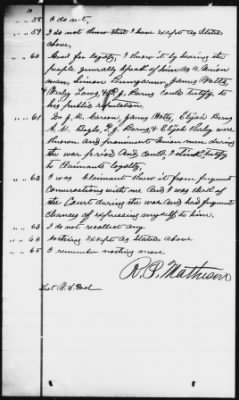 58 I do not.
59 I do not know that I have except as stated
above.
60 Good for loyalty, I know it by hearing the
people generally speak of him as a Union
man, Simon Bumgarner, James Watts,
Wesly Laws, & J. Barns could testify to
his public reputation.
61 Dr J. M. Carson, James Watts, Elijah Barns
A. M. Bogle, J. J. Barns, & Elijah Burley were
known and prominent Union men during
the war period and could, I think, testify
to Claimants loyalty.
62 I was. Claimant knew it from frequent
Conversations with me and I was Clerk of
the Court during the war and had frequent
chances of expressing myself to him.
63 I do not recollect any
64 Nothing except as stated above
65 I remember nothing more
R. P. Matheson